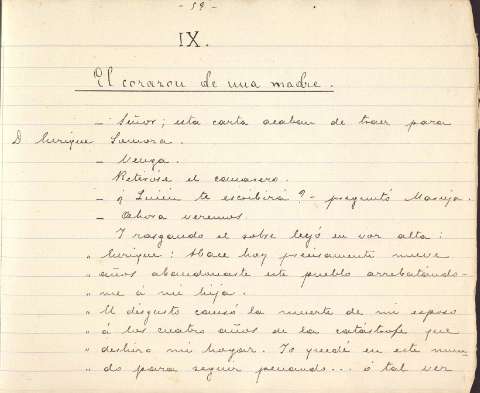 - 59 -
IX.
El corazon de una madre.
— Señor; esta carta acaban de traer para
D Enrique Zamora.
— Venga.
Retirose el camarero.
— ¿ Quién te escribirá ? - preguntó Maruja.
— Ahora veremos.
Y rasgando el sobre leyó en voz alta:
" Enrique: Hace hoy precisamente nueve
" años abandonaste este pueblo arrebatándo-
" me á mi hija.
" El disgusto causó la muerte de mi esposo
" á los cuatro años de la catástrofe que
" deshizo mi hogar. Yo quedé en este mun-
" do para seguir penando... ó tal vez